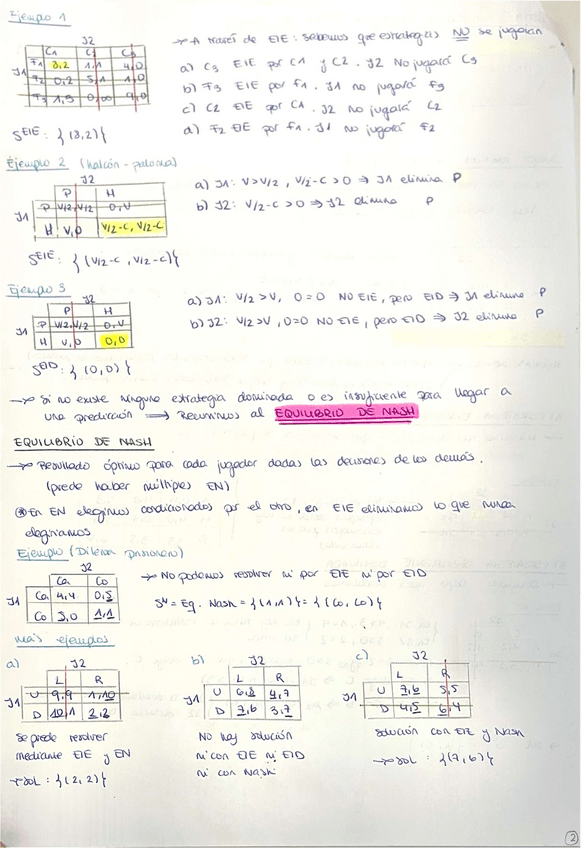 Ejemplo 1
J2
C1 C2 C3
F1 3,2 1,1 4,0
J1 F2 0,2 5,1 1,0
F3 1,5 0,00 9,0
SEIE: {(3,2)}
→ A través de EIE: sabemos que estrategias NO se jugarán
a) C3 EIE por C1 y C2. J2 No jugará C3
b) F3 EIE por F1. J1 no jugará F3
c) C2 EIE por C1. J2 no jugará C2
d) F2 EIE por F1. J1 no jugará F2
Ejemplo 2 (halcón-paloma)
J2
P H
J1 P V/2,V/2 0,V
H V,0 V/2-C, V/2-C
SEIE: {(V/2-C, V/2-C)}
a) J1: V>V/2, V/2-C>0 ⇒ J1 elimina P
b) J2: V/2-C>0 ⇒ J2 elimina P
Ejemplo 3
J2
P H
J1 P V/2,V/2 0,V
H V,0 0,0
SEID: {(0,0)}
a) J1: V/2>V, 0=0 NO EIE, pero EID ⇒ J1 elimina P
b) J2: V/2>V, 0=0 NO EIE, pero EID ⇒ J2 elimina P
→ Si no existe ninguna estrategia dominada o es insuficiente para llegar a
una predicción ⇒ Recurrimos al EQUILIBRIO DE NASH
EQUILIBRIO DE NASH
→ Resultado óptimo para cada jugador dadas las decisiones de los demás.
(puede haber múltiples EN)
* En EN elegimos condicionados por el otro, en EIE eliminamos lo que nunca
elegiríamos
Ejemplo (Dilema prisionero)
J2
Ca Co
J1 Ca 4,4 0,5
Co 5,0 1,1
→ No podemos resolver ni por EIE ni por EID
SN = Eq. Nash = {(1,1)} = {(Co, Co)}
más ejemplos
a) J2
L R
J1 U 9,9 1,10
D 10,1 2,2
Se puede resolver
mediante EIE y EN
→ sol: {(2,2)}
b) J2
L R
J1 U 6,8 4,7
D 7,6 3,7
No hay solución
ni con EIE ni EID
ni con Nash
c) J2
L R
J1 U 7,6 5,5
D 4,5 6,4
solución con EIE y Nash
→ sol: {(7,6)}
2